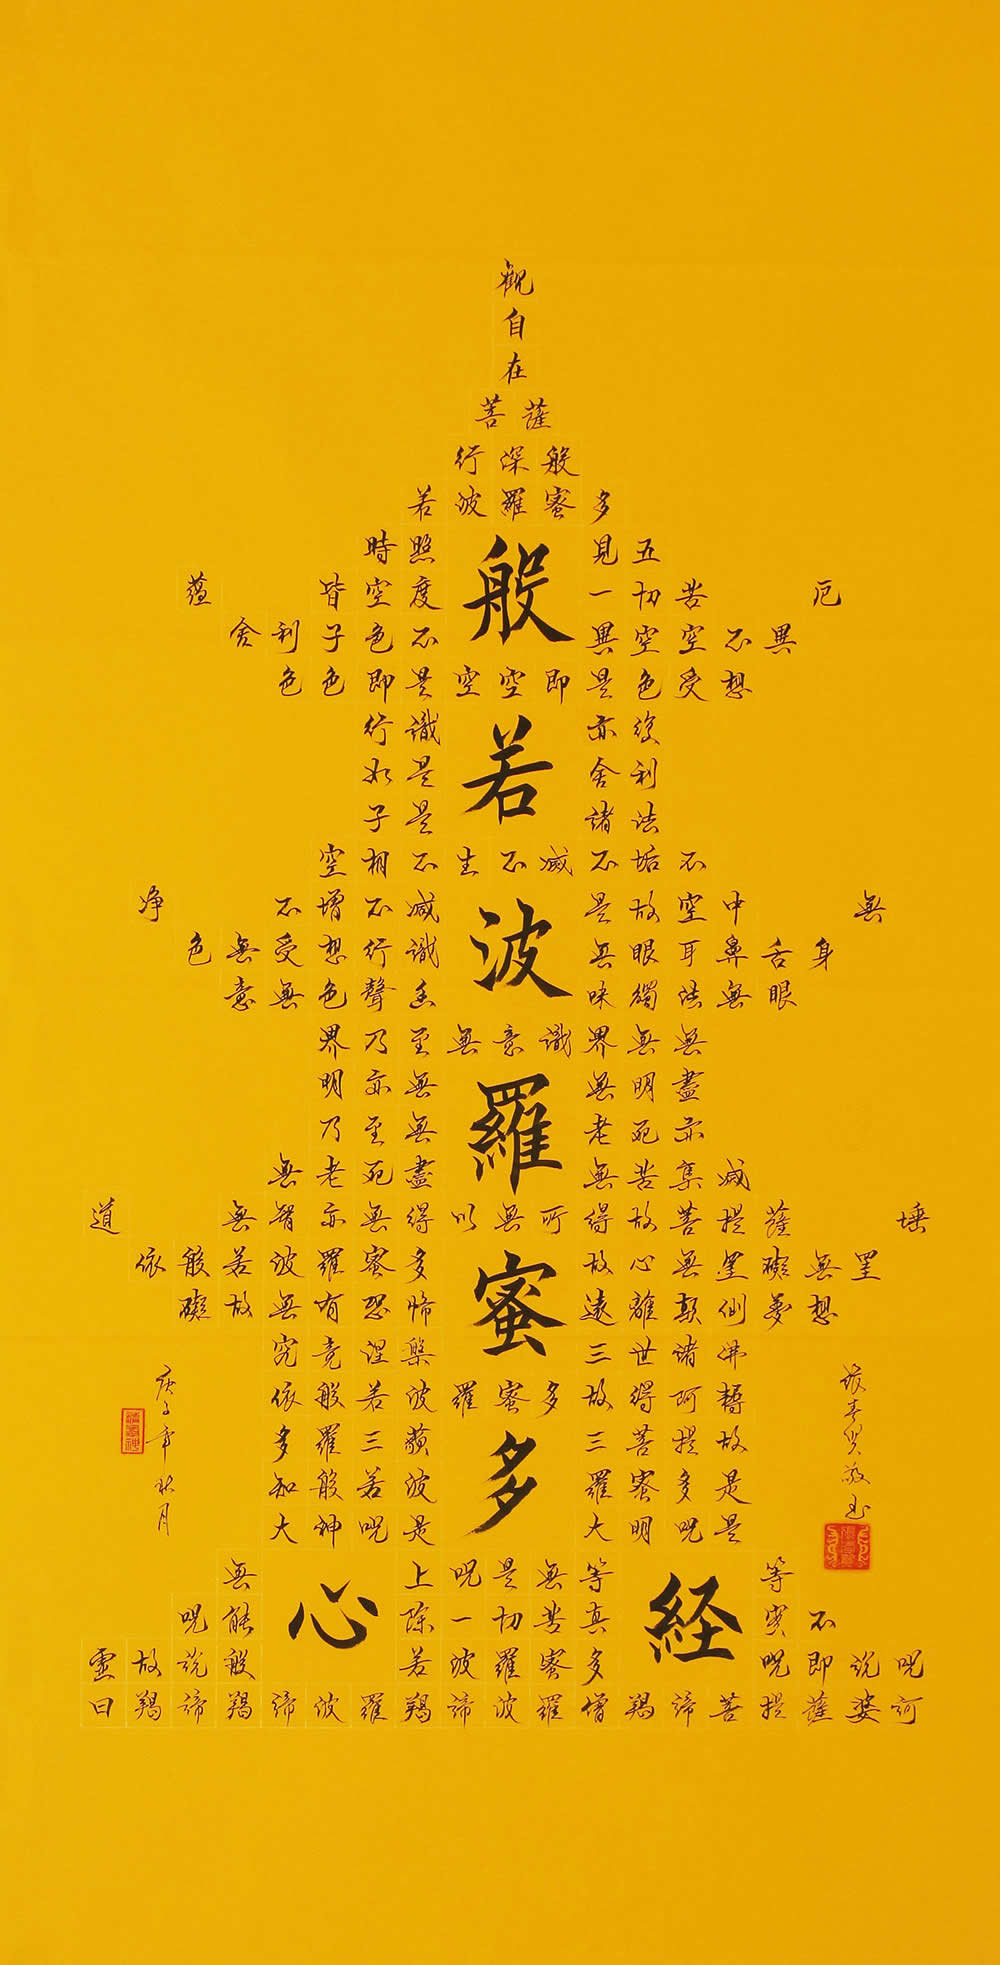 觀
自
在
菩薩
行深般
若波羅蜜多
時照見五
蘊皆空度一切苦厄
舍利子色不異空空不異
色色即是空空即是色受想
行識亦復
如是舍利
子是諸法
空相不生不滅不垢不
净不增不减是故空中無
色無受想行識無眼耳鼻舌身
意無色聲香味觸法無眼
界乃至無意識界無無
明亦無無明盡
乃至無老死亦
無老死盡無苦集滅
道無智亦無得以無所得故菩提薩埵
依般若波羅蜜多故心無罣礙無罣
礙故無有恐怖遠離顛倒夢想
究竟涅槃三世諸佛
依般若波羅蜜多故得阿耨
多羅三藐三菩提故
知般若波羅蜜多是
大神咒是大明咒是
無上咒是無等等
咒能除一切苦真實不
虛故說般若波羅蜜多咒即說咒
曰羯諦羯諦波羅羯諦波羅僧羯諦菩提薩婆訶
般若波羅蜜多
心経
敬書
庚子年秋月